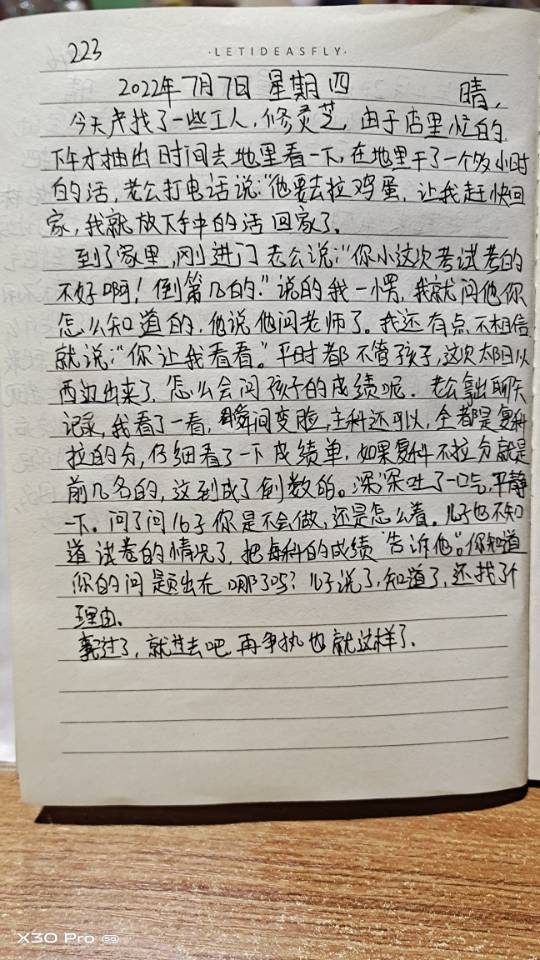 223
·LETIDEASFLY·
2022年7月7日 星期四 晴,
今天户找了一些工人,修灵芝,由于店里忙的,
下午才抽出时间去地里看一下,在地里干了一个多小时
的活,老公打电话说:“他要去拉鸡蛋,让我赶快回
家,我就放下手中的活回家了。
到了家里,刚进门老公说:“你小这次考试考的
不好啊!倒第几的.”说的我一愣,我就问他你
怎么知道的,他说他问老师了。我还有点不相信
就说:“你让我看看。”平时都不管孩子,这次太阳从
西边出来了,怎么会问孩子的成绩呢.老公拿出聊天
记录,我看了一看,瞬间变脸,主科还可以,全都是复科
拉的分,仔细看了一下成绩单,如果复科不拉分就是
前几名的,这到成了倒数的。深深吐了一口气,平静
一下。问了问儿子你是不会做,还是怎么着。儿子也不知
道试卷的情况了,把每科的成绩告诉他。“你知道
你的问题出在哪了吗?儿子说了,知道了,还找了个
理由。
过了,就过去吧,再争执也就这样了.
X30 Pro 5G